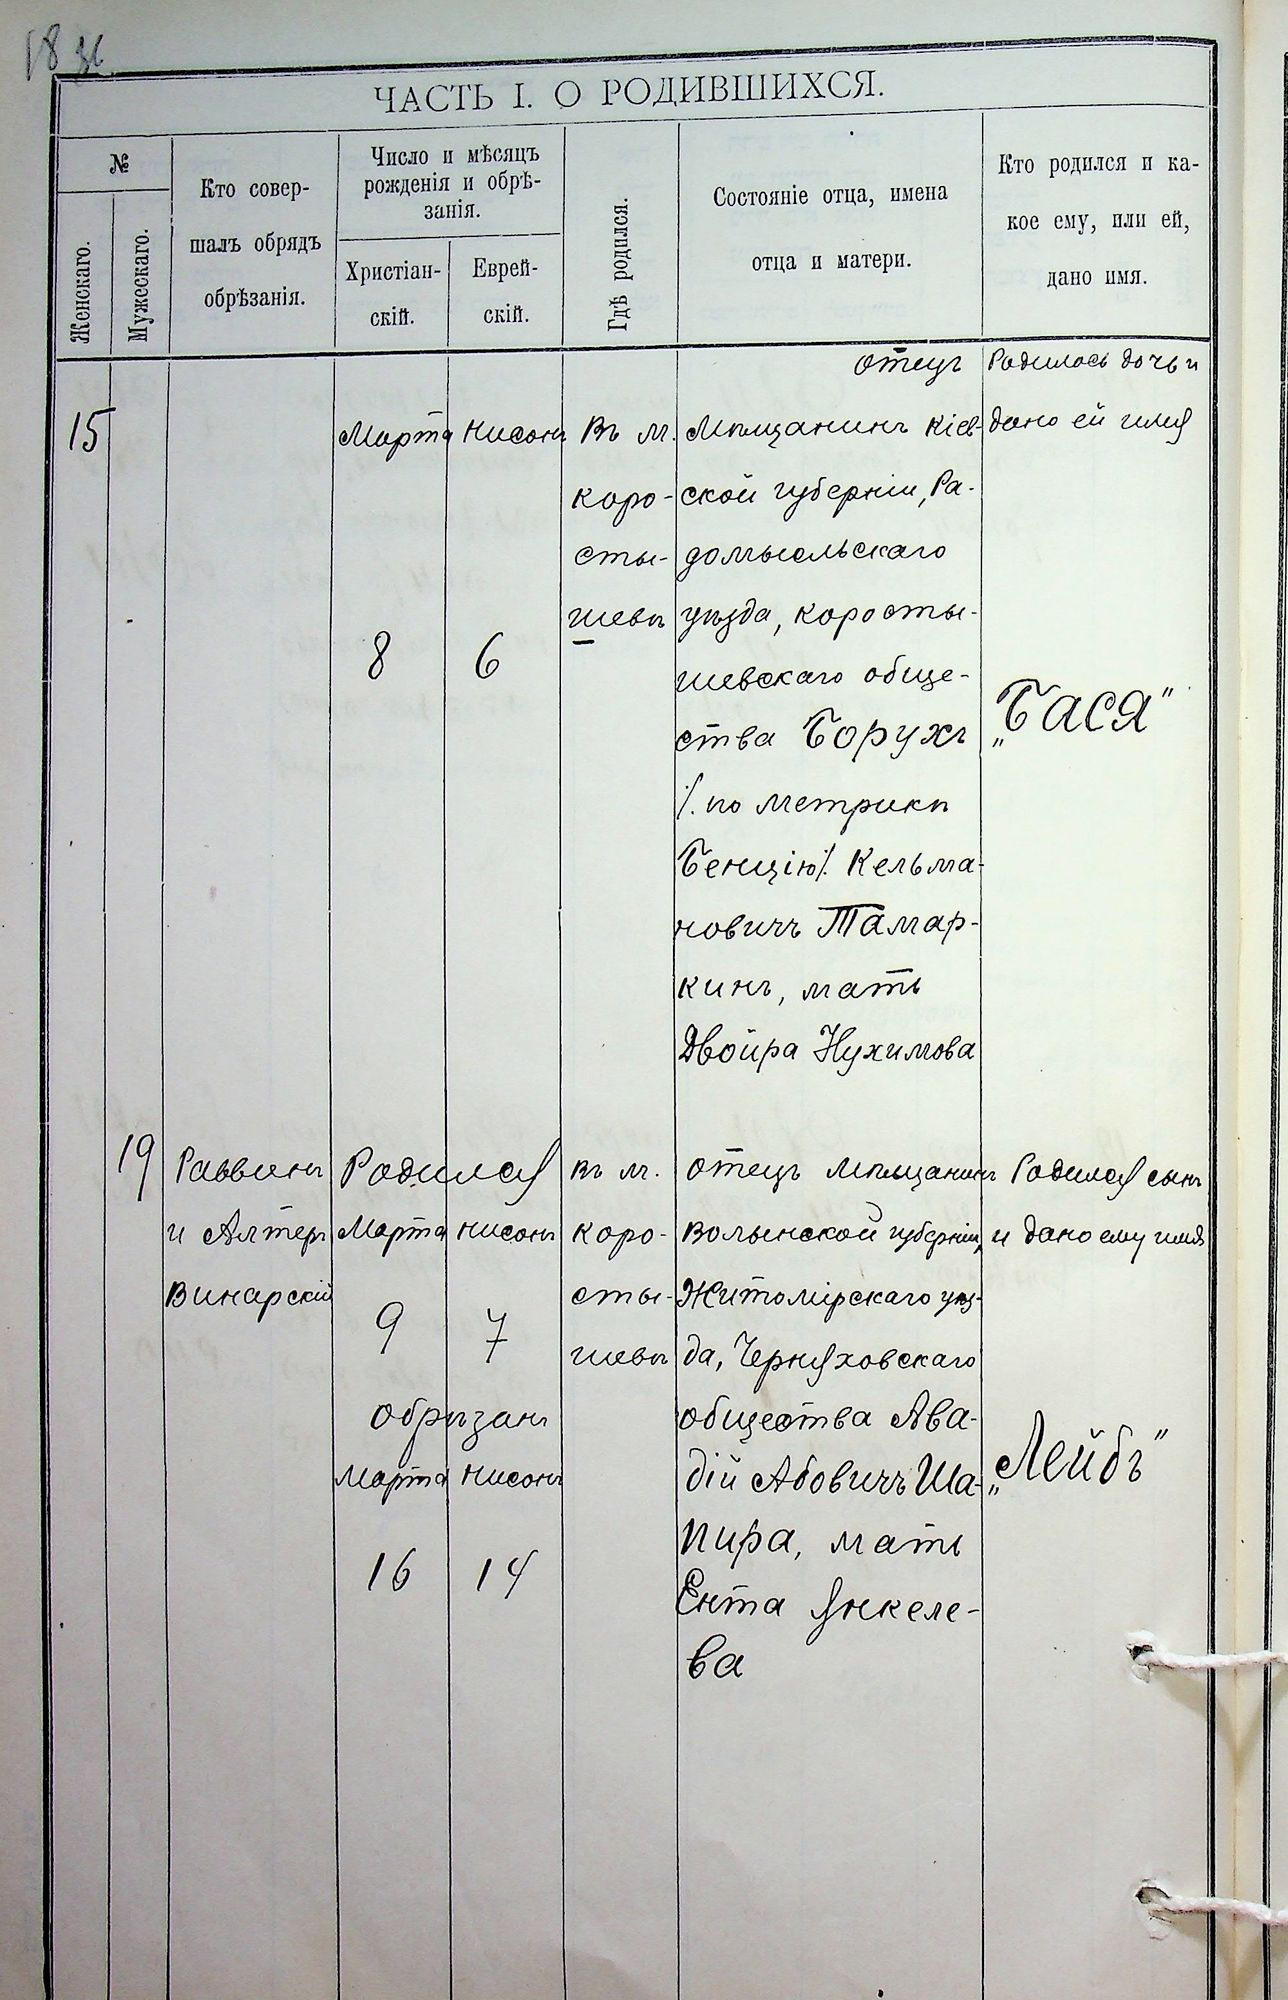 ЧАСТЬ I. О РОДИВШИХСЯ.
№
Женскаго.
Мужескаго.
Кто совер-
шалъ обрядъ
обрѣзанія.
Число и мѣсяцъ
рожденія и обрѣ-
занія.
Христіан-
скій.
Еврей-
скій.
Гдѣ родился.
Состояніе отца, имена
отца и матери.
Кто родился и ка-
кое ему, или ей,
дано имя.
15
Марта
8
Нисонъ
6
Въ м.
Коро-
сты-
шевѣ
отецъ
Мѣщанинъ Кіев-
ской губерніи, Ра-
домысльскаго
уѣзда, Коросты-
шевскаго обще-
ства Борухъ
/. по метрикѣ
Бенцію/. Кельма-
новичъ Тамар-
кинъ, мать
Двойра Нухимова
Родилось дочь и
дано ей имя
„Бася"
19
Раввинъ
и Алтеръ
Винарскій
Родился
Марта Нисонъ
9 7
обрѣзанъ
Марта Нисонъ
16 14
Въ м.
Коро-
сты-
шевѣ
отецъ мѣщанинъ
Волынской губерніи,
Житомірскаго уѣз-
да, Черняховскаго
общества Ава-
дій Абовичъ Ша-
пира, мать
Ента Янкеле-
ва
Родился сынъ
и дано ему имя
„Лейбъ"